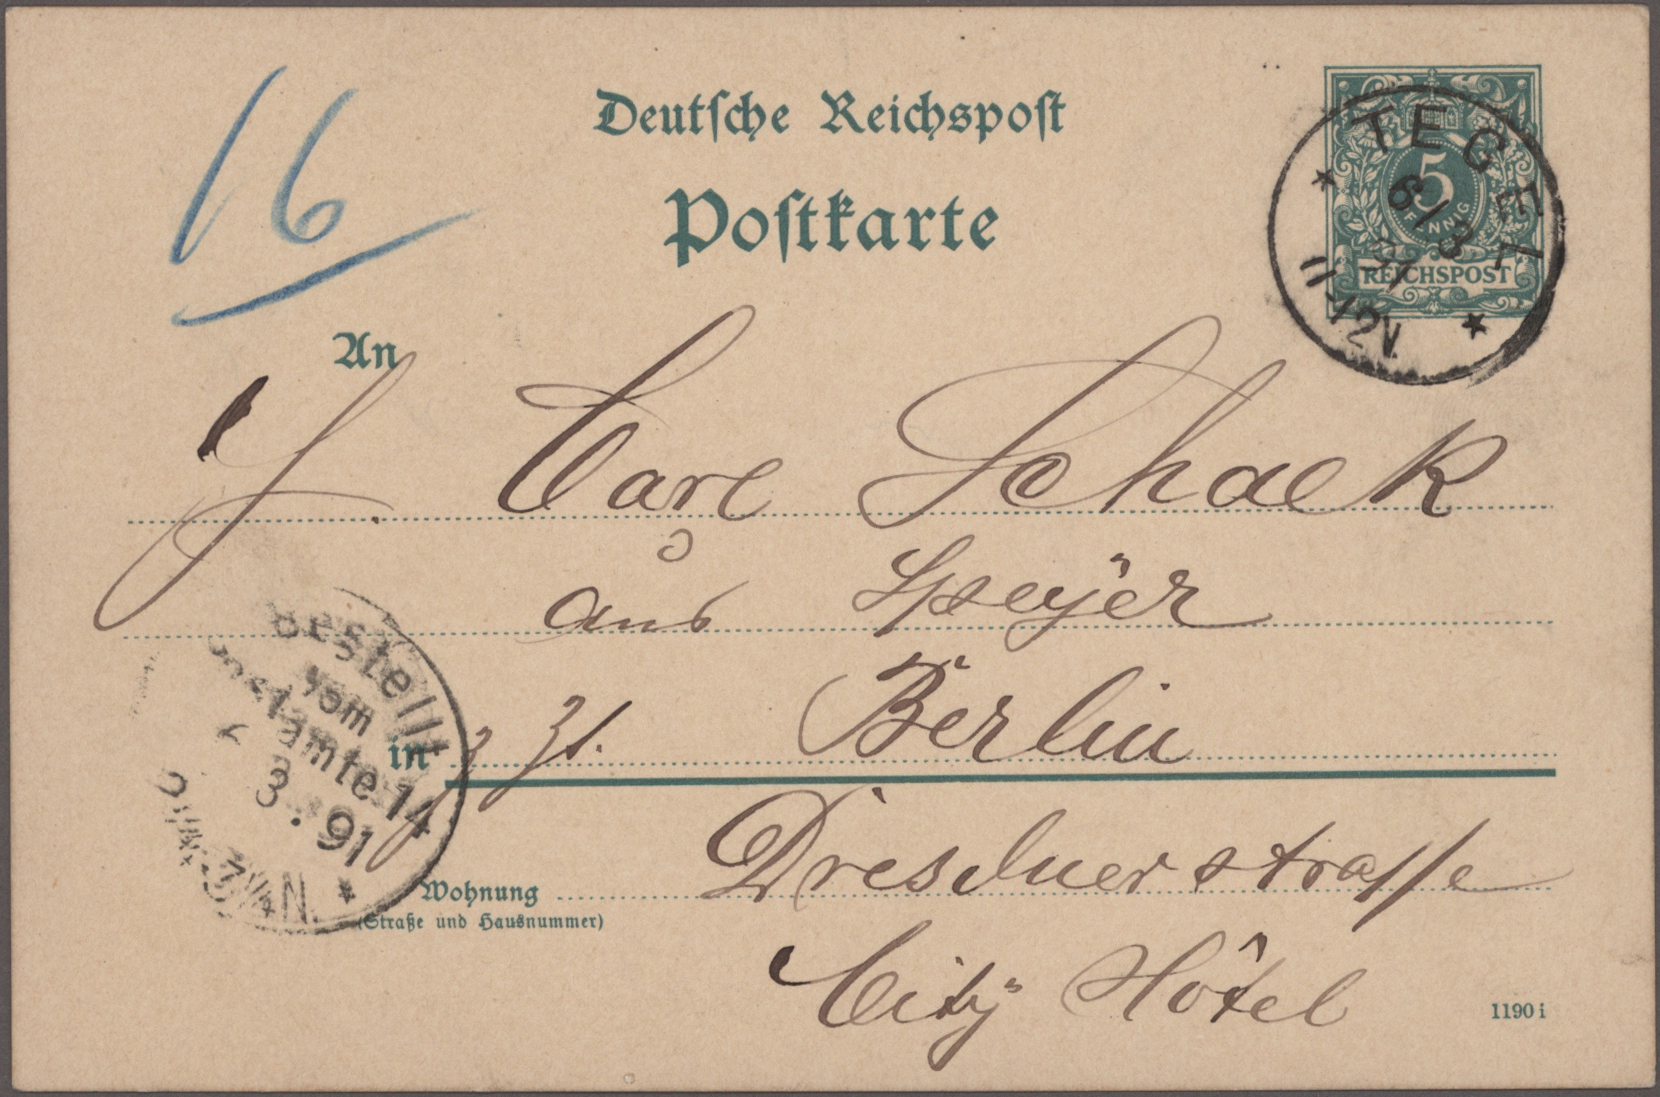 16
Deutsche Reichspost
Postkarte
5
PFENNIG
REICHSPOST
TEGEL
6/3
91
11-12V.
An
Carl Schack
aus Speyer
in z. Zt. Berlin
Wohnung Dresdnerstrasse
(Straße und Hausnummer)
City Hôtel
1190 i
Bestellt
vom
Postamte 14
6
3. 91
N.